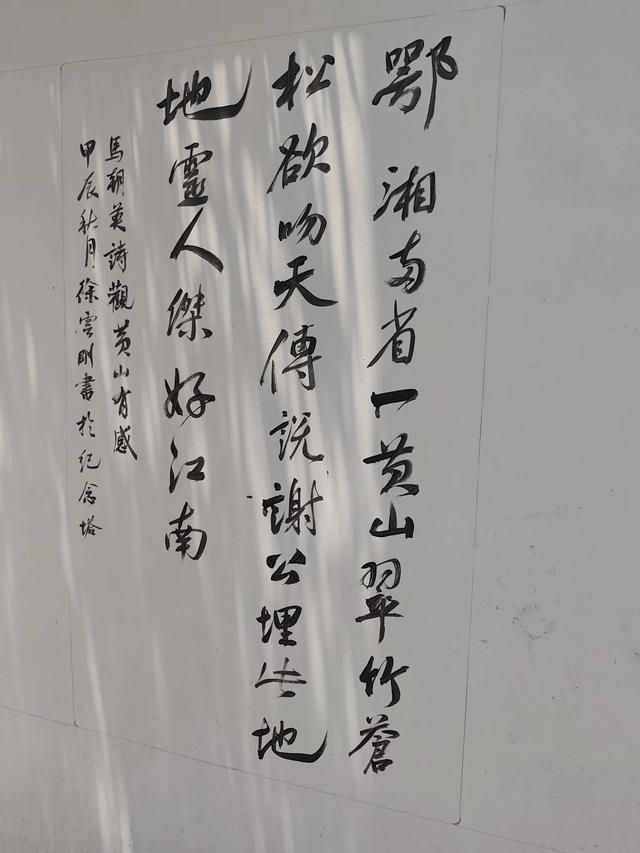 鄂湘两省一黄山翠竹蒼
松欲吻天傳説謝公埋此地
地靈人傑好江南
馬朝英詩觀黄山有感
甲辰秋月徐雲剛書於纪念塔